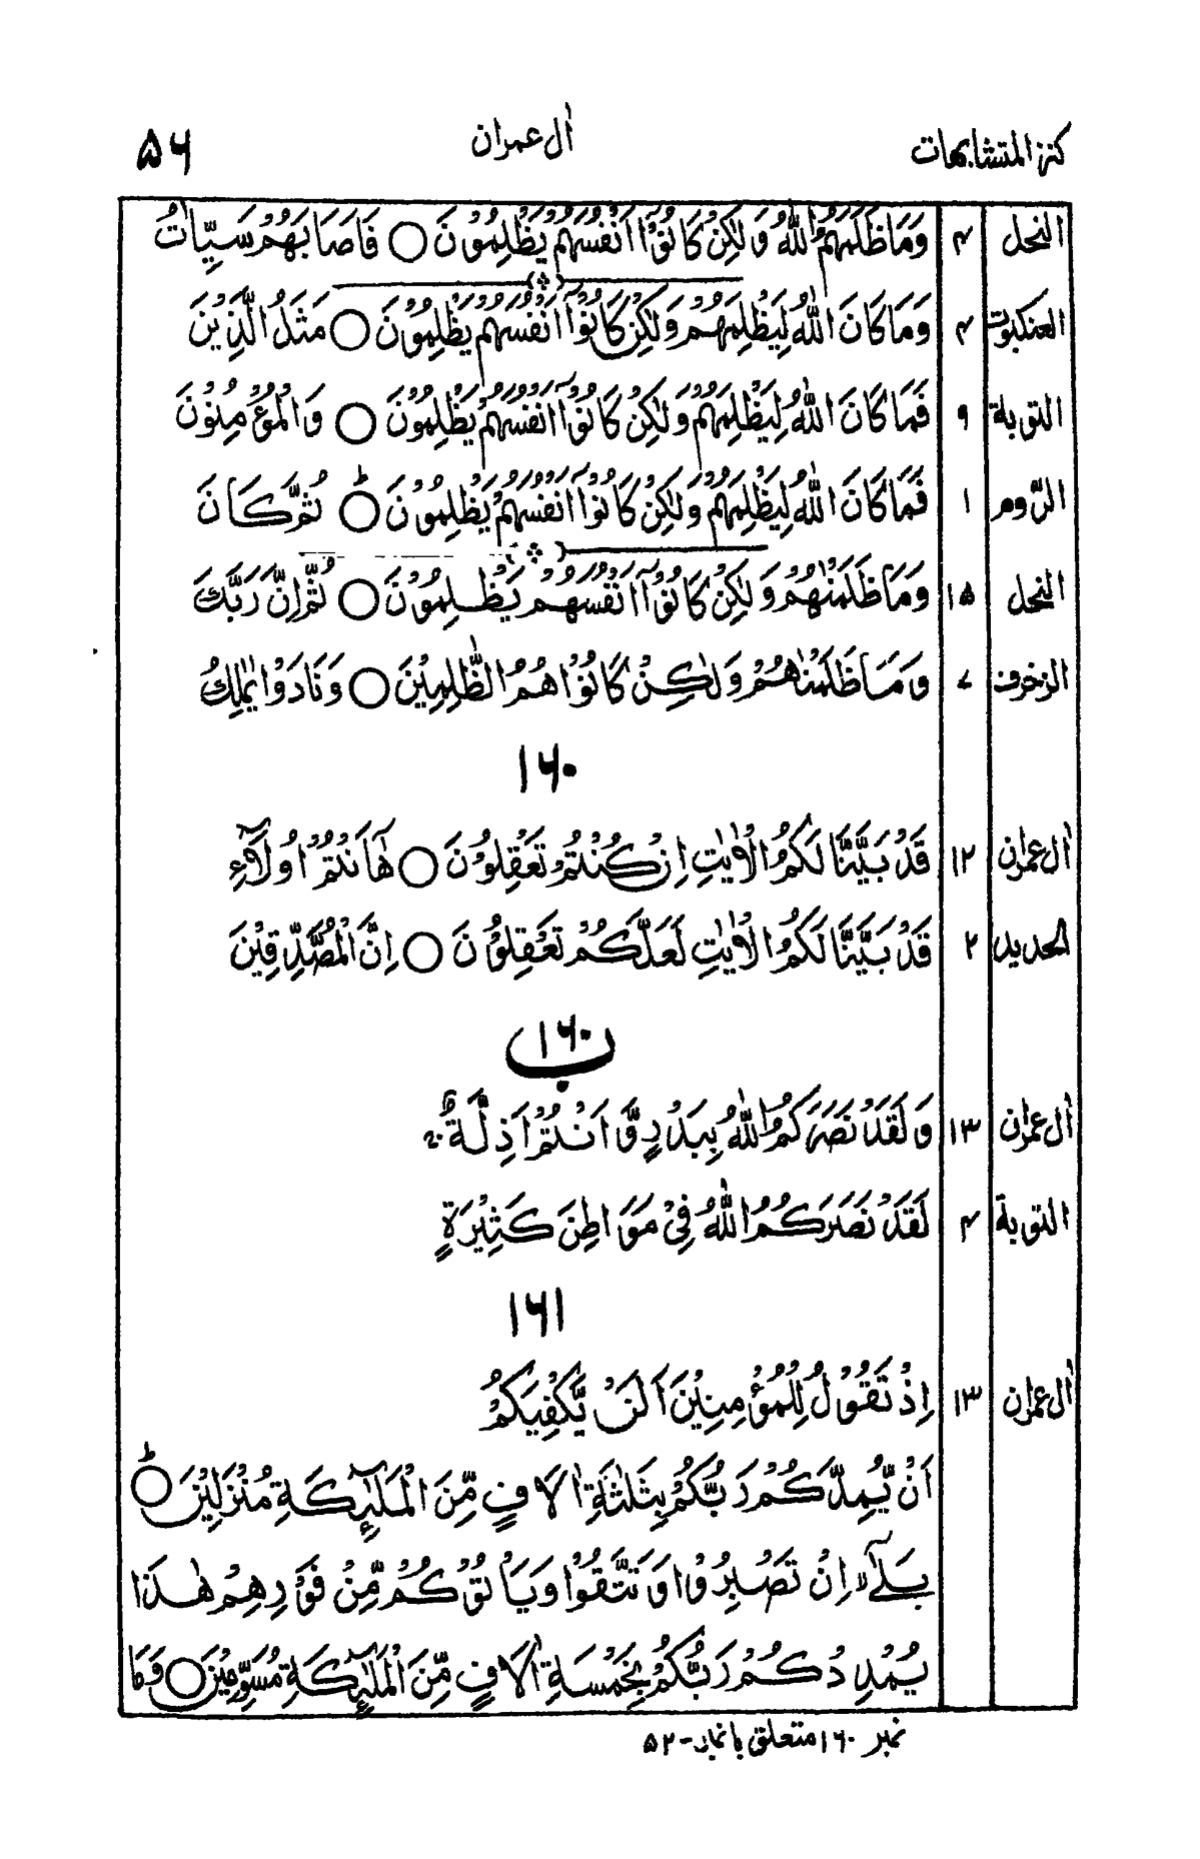 كنز المتشابهات اٰل عمران ۵۶
النحل ۴ وَمَا ظَلَمَهُمُ اللّٰهُ وَلٰكِنْ كَانُوْٓا اَنْفُسَهُمْ يَظْلِمُوْنَ ○ فَاَصَابَهُمْ سَيِّاٰتُ
العنكبوت ۴ وَمَا كَانَ اللّٰهُ لِيَظْلِمَهُمْ وَلٰكِنْ كَانُوْٓا اَنْفُسَهُمْ يَظْلِمُوْنَ ○ مَثَلُ الَّذِيْنَ
التوبة ۹ فَمَا كَانَ اللّٰهُ لِيَظْلِمَهُمْ وَلٰكِنْ كَانُوْٓا اَنْفُسَهُمْ يَظْلِمُوْنَ ○ وَالْمُؤْمِنُوْنَ
الرّوم ۱ فَمَا كَانَ اللّٰهُ لِيَظْلِمَهُمْ وَلٰكِنْ كَانُوْٓا اَنْفُسَهُمْ يَظْلِمُوْنَ ○ؕ ثُمَّ كَانَ
النحل ۱۵ وَمَا ظَلَمْنٰهُمْ وَلٰكِنْ كَانُوْٓا اَنْفُسَهُمْ يَظْلِمُوْنَ ○ ثُمَّ اِنَّ رَبَّكَ
الزخرف ۷ وَمَا ظَلَمْنٰهُمْ وَلٰكِنْ كَانُوْا هُمُ الظّٰلِمِيْنَ ○ وَنَادَوْا يٰمٰلِكُ
۱۶۰
اٰل عمران ۱۲ قَدْ بَيَّنَّا لَكُمُ الْاٰيٰتِ اِنْ كُنْتُمْ تَعْقِلُوْنَ ○ هٰٓاَنْتُمْ اُولَآءِ
الحديد ۲ قَدْ بَيَّنَّا لَكُمُ الْاٰيٰتِ لَعَلَّكُمْ تَعْقِلُوْنَ ○ اِنَّ الْمُصَّدِّقِيْنَ
۱۶۰ ب
اٰل عمران ۱۳ وَلَقَدْ نَصَرَكُمُ اللّٰهُ بِبَدْرٍ وَّاَنْتُمْ اَذِلَّةٌ ۚ
التوبة ۴ لَقَدْ نَصَرَكُمُ اللّٰهُ فِيْ مَوَاطِنَ كَثِيْرَةٍ
۱۶۱
اٰل عمران ۱۳ اِذْ تَقُوْلُ لِلْمُؤْمِنِيْنَ اَلَنْ يَّكْفِيَكُمْ
اَنْ يُّمِدَّكُمْ رَبُّكُمْ بِثَلٰثَةِ اٰلَافٍ مِّنَ الْمَلٰٓئِكَةِ مُنْزَلِيْنَ ○ؕ
بَلٰٓى ۙ اِنْ تَصْبِرُوْا وَتَتَّقُوْا وَيَاْتُوْكُمْ مِّنْ فَوْرِهِمْ هٰذَا
يُمْدِدْكُمْ رَبُّكُمْ بِخَمْسَةِ اٰلَافٍ مِّنَ الْمَلٰٓئِكَةِ مُسَوِّمِيْنَ ○ وَمَا
نمبر ۱۶۰ متعلق بانمبر - ۵۲